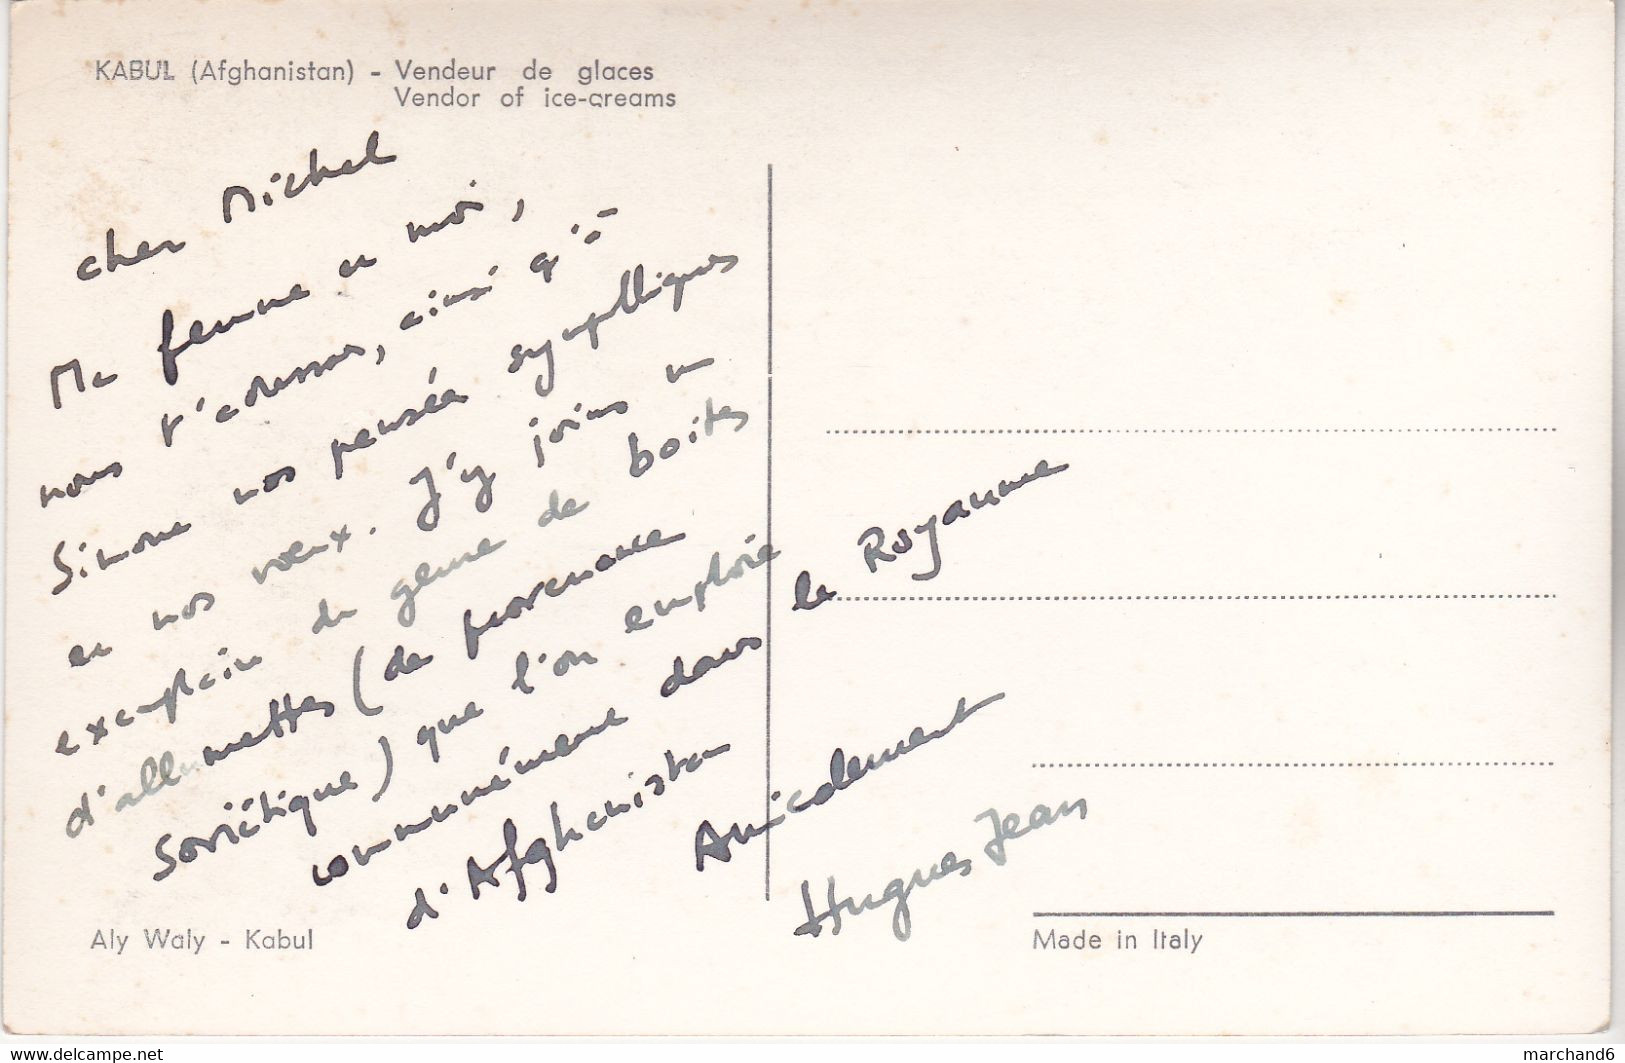 KABUL (Afghanistan) - Vendeur de glaces
Vendor of ice-creams
cher Michel
Ma femme et moi,
nous t'adressons, ainsi qu'à
Simone nos pensées sympathiques
et nos vœux. J'y joins un
exemplaire du genre de boites
d'allumettes (de provenance
soviétique) que l'on emploie
communément dans le Royaume
d'Afghanistan
Amicalement
Hugues Jean
Aly Waly - Kabul
Made in Italy
www.delcampe.net
marchand6